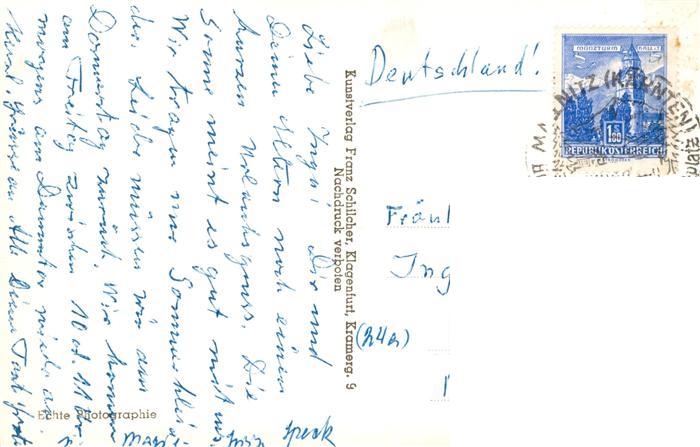 Liebe Inga! Dir und
Deinen Eltern noch einen
kurzen Urlaubsgruss. Die
Sonne meint es gut mit uns.
Wir tragen nur Sommerklei-
der. Leider müssen wir am
Donnerstag zurück. Wir kommen
am Freitag zwischen 10 od. 11 Uhr
morgens am Dammtor wieder an.
Herzl. Grüsse an Alle Deine Tante
Echte Photographie
Kunstverlag Franz Schilcher, Klagenfurt, Kramerg. 9
Nachdruck verboten
Deutschland!
MÜNZTURM HALL i. T.
1.50
REPUBLIK ÖSTERREICH
MALLNITZ (KÄRNTEN)
Fräul
Ing
(24a)